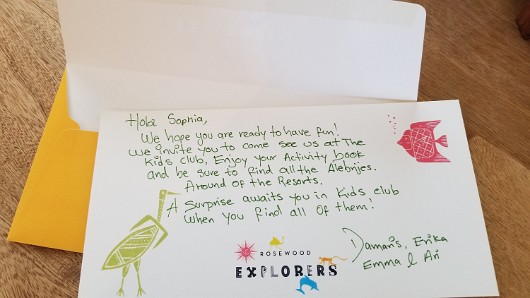 Hola Sophia,
We hope you are ready to have fun!
We invite you to come see us at The
Kids club, Enjoy your Activity book
and be sure to find all the Alebrijes.
Around of the Resorts.
A Surprise awaits you in Kids club
When you find all of them!
Damaris, Erika
Emma & Ari
ROSEWOOD
EXPLORERS